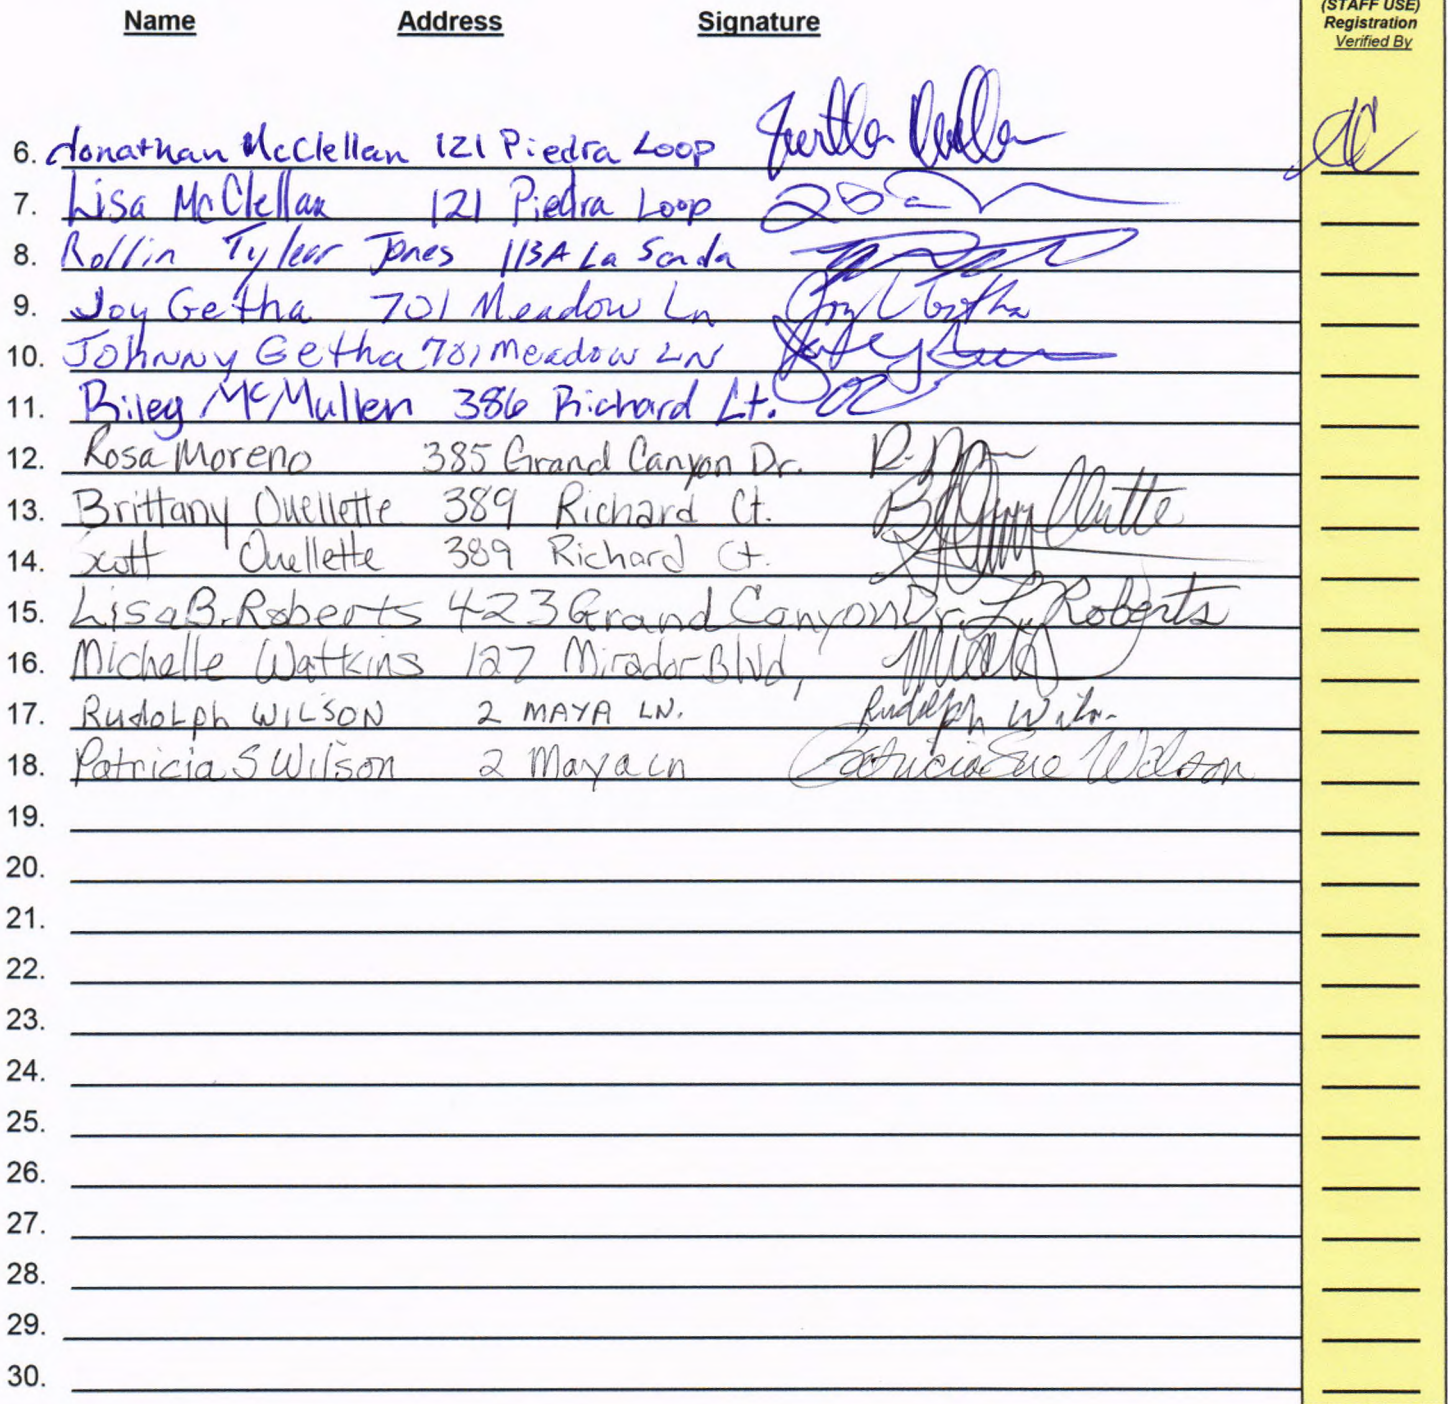 (STAFF USE)
Name Address Signature Registration
Verified By
6. Jonathan McClellan 121 Piedra Loop
7. Lisa McClellan 121 Piedra Loop
8. Rollin Tylear Jones 113A La Senda
9. Joy Getha 701 Meadow Ln Joy Getha
10. Johnny Getha 701 Meadow LN
11. Riley McMullen 386 Richard Ct.
12. Rosa Moreno 385 Grand Canyon Dr.
13. Brittany Ouellette 389 Richard Ct.
14. Scott Ouellette 389 Richard Ct.
15. Lisa B. Roberts 423 Grand Canyon Dr. L. Roberts
16. Michelle Watkins 127 Mirador Blvd,
17. RudoLph WILSON 2 MAYA LN. Rudolph Wilson
18. Patricia S Wilson 2 Maya Ln Patricia Sue Wilson
19.
20.
21.
22.
23.
24.
25.
26.
27.
28.
29.
30.